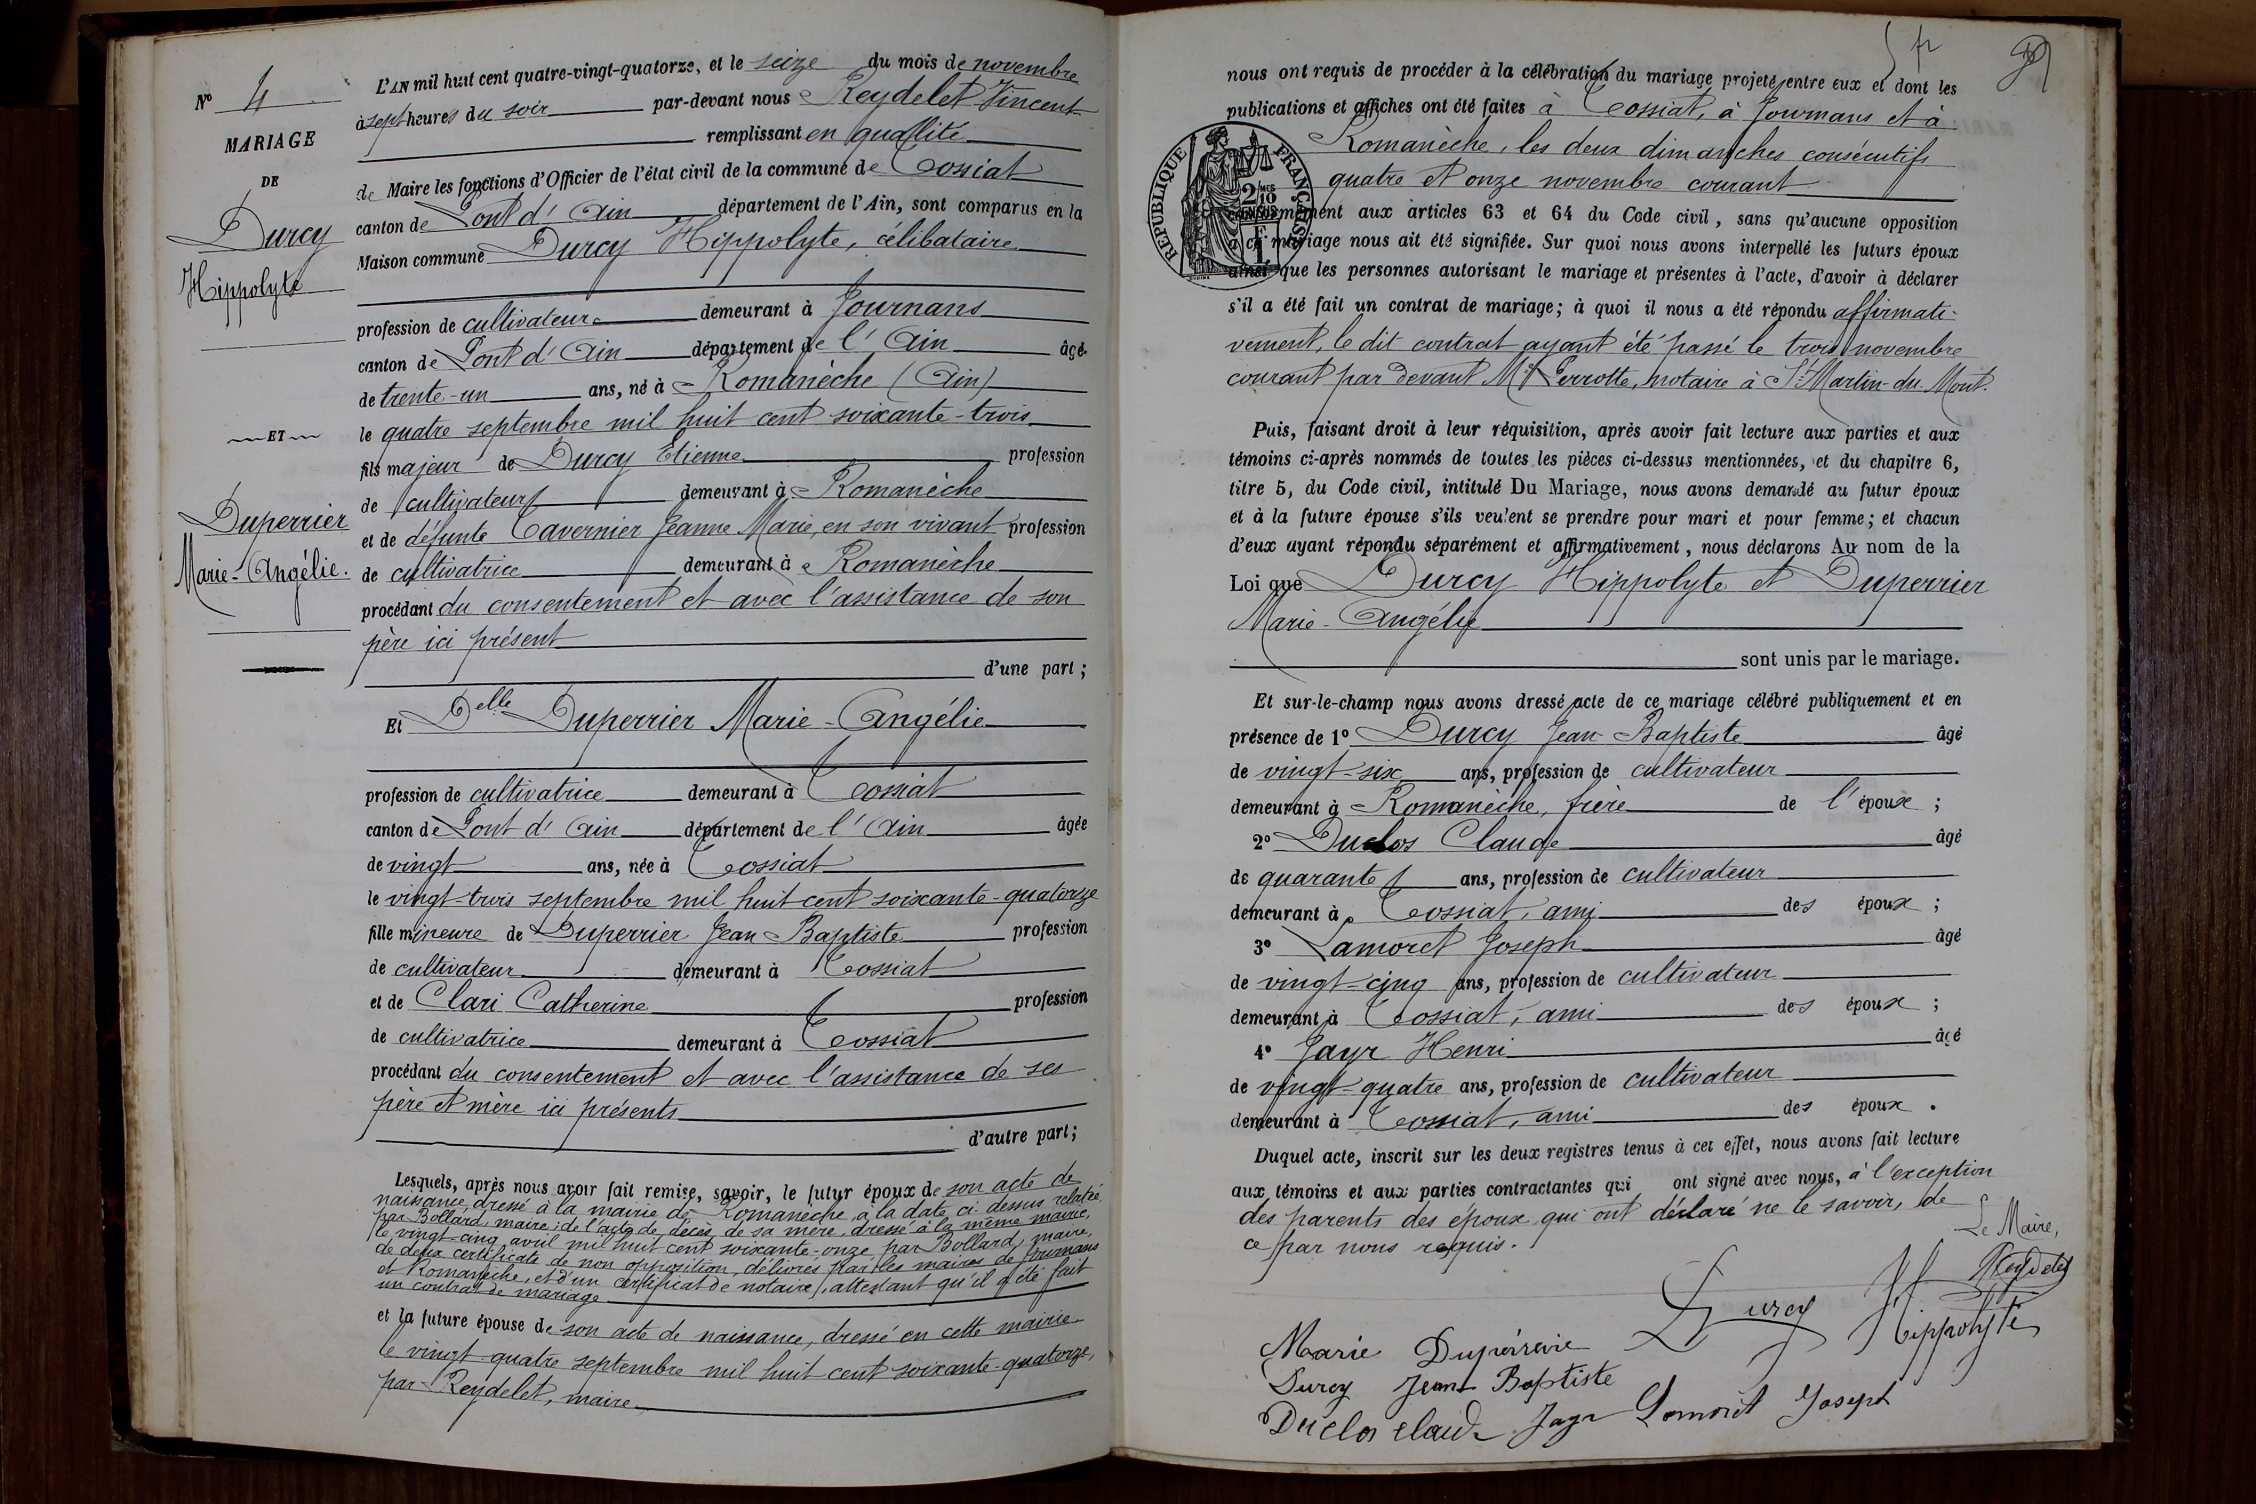 N° 4
MARIAGE
DE
Durcy
Hippolyte
ET
Duperrier
Marie-Angélie.
L'AN mil huit cent quatre-vingt-quatorze, et le seize du mois de novembre
à sept heures du soir par-devant nous Reydelet Vincent
remplissant en quallité
de Maire les fonctions d'Officier de l'état civil de la commune de Tossiat
canton de Pont d'Ain département de l'Ain, sont comparus en la
Maison commune Durcy Hippolyte, célibataire
profession de cultivateur demeurant à Journans
canton de Pont d'Ain département de l'Ain âgé
de trente-un ans, né à Romanèche (Ain)
le quatre septembre mil huit cent soixante-trois
fils majeur de Durcy Etienne profession
de cultivateur demeurant à Romanèche
et de défunte Tavernier Jeanne Marie, en son vivant profession
de cultivatrice demeurant à Romanèche
procédant du consentement et avec l'assistance de son
père ici présent
d'une part ;
Et Delle Duperrier Marie-Angélie
profession de cultivatrice demeurant à Tossiat
canton de Pont d'Ain département de l'Ain âgée
de vingt ans, née à Tossiat
le vingt-trois septembre mil huit cent soixante-quatorze
fille mineure de Duperrier Jean Baptiste profession
de cultivateur demeurant à Tossiat
et de Clari Catherine profession
de cultivatrice demeurant à Tossiat
procédant du consentement et avec l'assistance de ses
père et mère ici présents
d'autre part ;
Lesquels, après nous avoir fait remise, savoir, le futur époux de son acte de
naissance, dressé à la mairie de Romanèche, à la date ci-dessus relatée,
par Bollard, maire ; de l'acte de décès de sa mère, dressé à la même mairie,
le vingt-cinq avril mil huit cent soixante-onze par Bollard, maire,
de deux certificats de non opposition, délivrés par les maires de Journans
et Romanèche, et d'un certificat de notaire, attestant qu'il a été fait
un contrat de mariage
et la future épouse de son acte de naissance, dressé en cette mairie
le vingt-quatre septembre mil huit cent soixante-quatorze,
par Reydelet, maire
nous ont requis de procéder à la célébration du mariage projeté entre eux et dont les
publications et affiches ont été faites à Tossiat, à Journans et à
Romanèche, les deux dimanches consécutifs
quatre et onze novembre courant
RÉPUBLIQUE FRANÇAISE
2/10
conformément aux articles 63 et 64 du Code civil, sans qu'aucune opposition
à ce mariage nous ait été signifiée. Sur quoi nous avons interpellé les futurs époux
ainsi que les personnes autorisant le mariage et présentes à l'acte, d'avoir à déclarer
s'il a été fait un contrat de mariage ; à quoi il nous a été répondu affirmati-
vement, le dit contrat ayant été passé le trois novembre
courant par devant Me Perrotte, notaire à St Martin-du-Mont.
Puis, faisant droit à leur réquisition, après avoir fait lecture aux parties et aux
témoins ci-après nommés de toutes les pièces ci-dessus mentionnées, et du chapitre 6,
titre 5, du Code civil, intitulé Du Mariage, nous avons demandé au futur époux
et à la future épouse s'ils veulent se prendre pour mari et pour femme ; et chacun
d'eux ayant répondu séparément et affirmativement, nous déclarons Au nom de la
Loi que Durcy Hippolyte et Duperrier
Marie-Angélie
sont unis par le mariage.
Et sur-le-champ nous avons dressé acte de ce mariage célébré publiquement et en
présence de 1° Durcy Jean Baptiste âgé
de vingt-six ans, profession de cultivateur
demeurant à Romanèche, frère de l'époux ;
2° Duclos Claude âgé
de quarante ans, profession de cultivateur
demeurant à Tossiat, ami des époux ;
3° Lamoret Joseph âgé
de vingt-cinq ans, profession de cultivateur
demeurant à Tossiat, ami des époux ;
4° Jayr Henri âgé
de vingt-quatre ans, profession de cultivateur
demeurant à Tossiat, ami des époux.
Duquel acte, inscrit sur les deux registres tenus à cet effet, nous avons fait lecture
aux témoins et aux parties contractantes qui ont signé avec nous, à l'exception
des parents des époux qui ont déclaré ne le savoir, de
ce par nous requis.
Le Maire,
Reydelet
Durcy Hippolyte
Marie
Durcy Jean Baptiste
Duclos Claude Jayr Lamoret Joseph